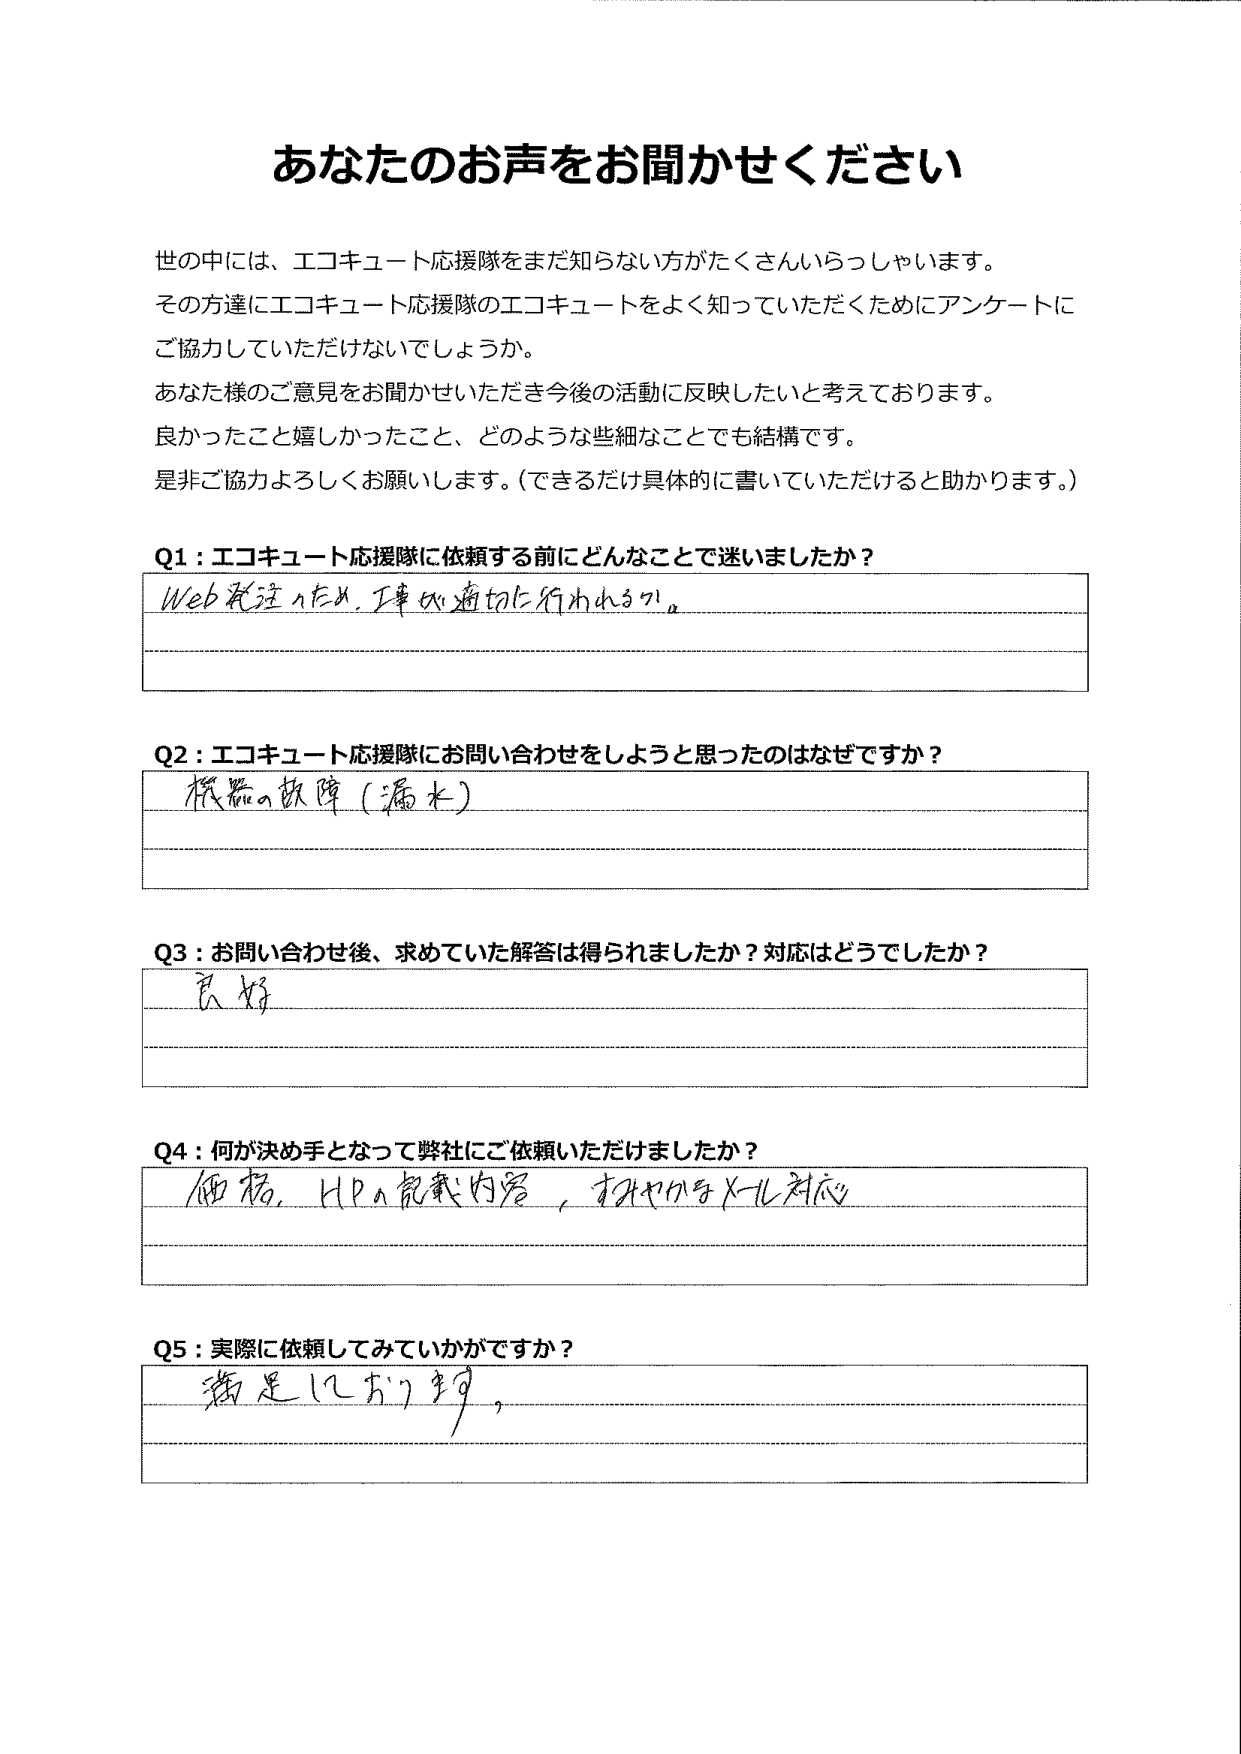 あなたのお声をお聞かせください
世の中には、エコキュート応援隊をまだ知らない方がたくさんいらっしゃいます。
その方達にエコキュート応援隊のエコキュートをよく知っていただくためにアンケートに
ご協力していただけないでしょうか。
あなた様のご意見をお聞かせいただき今後の活動に反映したいと考えております。
良かったこと嬉しかったこと、どのような些細なことでも結構です。
是非ご協力よろしくお願いします。（できるだけ具体的に書いていただけると助かります。）
Q1：エコキュート応援隊に依頼する前にどんなことで迷いましたか？
Web発注のため、工事が適切に行われるか。
Q2：エコキュート応援隊にお問い合わせをしようと思ったのはなぜですか？
機器の故障（漏水）
Q3：お問い合わせ後、求めていた解答は得られましたか？対応はどうでしたか？
良好
Q4：何が決め手となって弊社にご依頼いただけましたか？
価格、HPの記載内容，すみやかなメール対応
Q5：実際に依頼してみていかがですか？
満足しております，